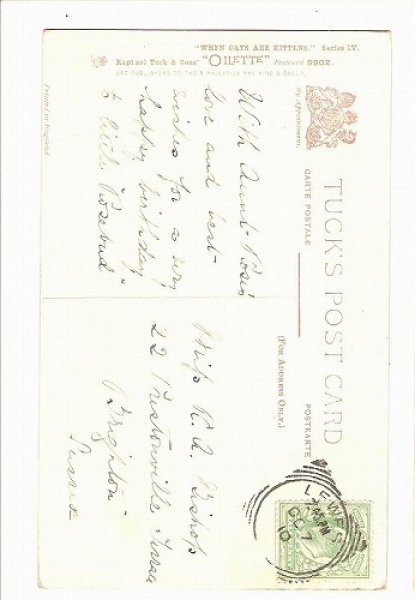 "WHEN CATS ARE KITTENS." Series IV.
Raphael Tuck & Sons' "OILETTE" Postcard 9902.
ART PUBLISHERS TO THEIR MAJESTIES THE KING & QUEEN.
By Appointment.
TUCK'S POST CARD
CARTE POSTALE
POSTKARTE
(FOR ADDRESS ONLY.)
Printed in England.
With Aunt Rosie's
love and best
wishes for a very
happy birthday
to little "Rosebud"
Miss K. A. Bishop
22 Prestonville Terrace
Brighton
Sussex
LEWES
7.45 PM
OC 7
10